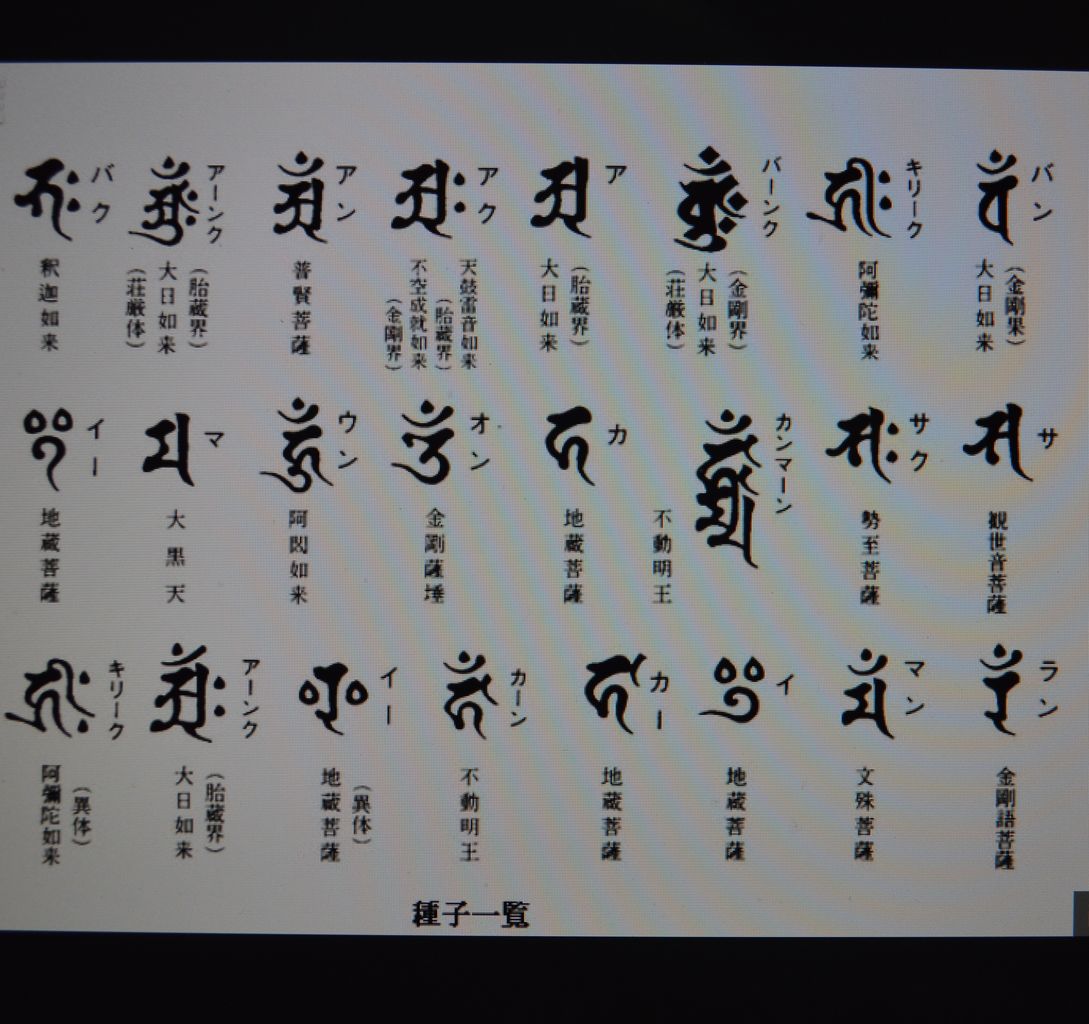 バン
（金剛果）
大日如来
キリーク
阿彌陀如来
バーンク
（金剛界）
大日如来
（荘厳体）
ア
（胎蔵界）
大日如来
アク
天鼓雷音如来
（胎蔵界）
不空成就如来
（金剛界）
アン
普賢菩薩
アーンク
（胎蔵界）
大日如来
（荘厳体）
バク
釈迦如来
サ
観世音菩薩
サク
勢至菩薩
カンマーン
不動明王
カ
地蔵菩薩
オン
金剛薩埵
ウン
阿閦如来
マ
大黒天
イー
地蔵菩薩
ラン
金剛語菩薩
マン
文殊菩薩
イ
地蔵菩薩
カー
地蔵菩薩
カーン
不動明王
イー
（異体）
地蔵菩薩
アーンク
（胎蔵界）
大日如来
キリーク
（異体）
阿彌陀如来
種子一覧